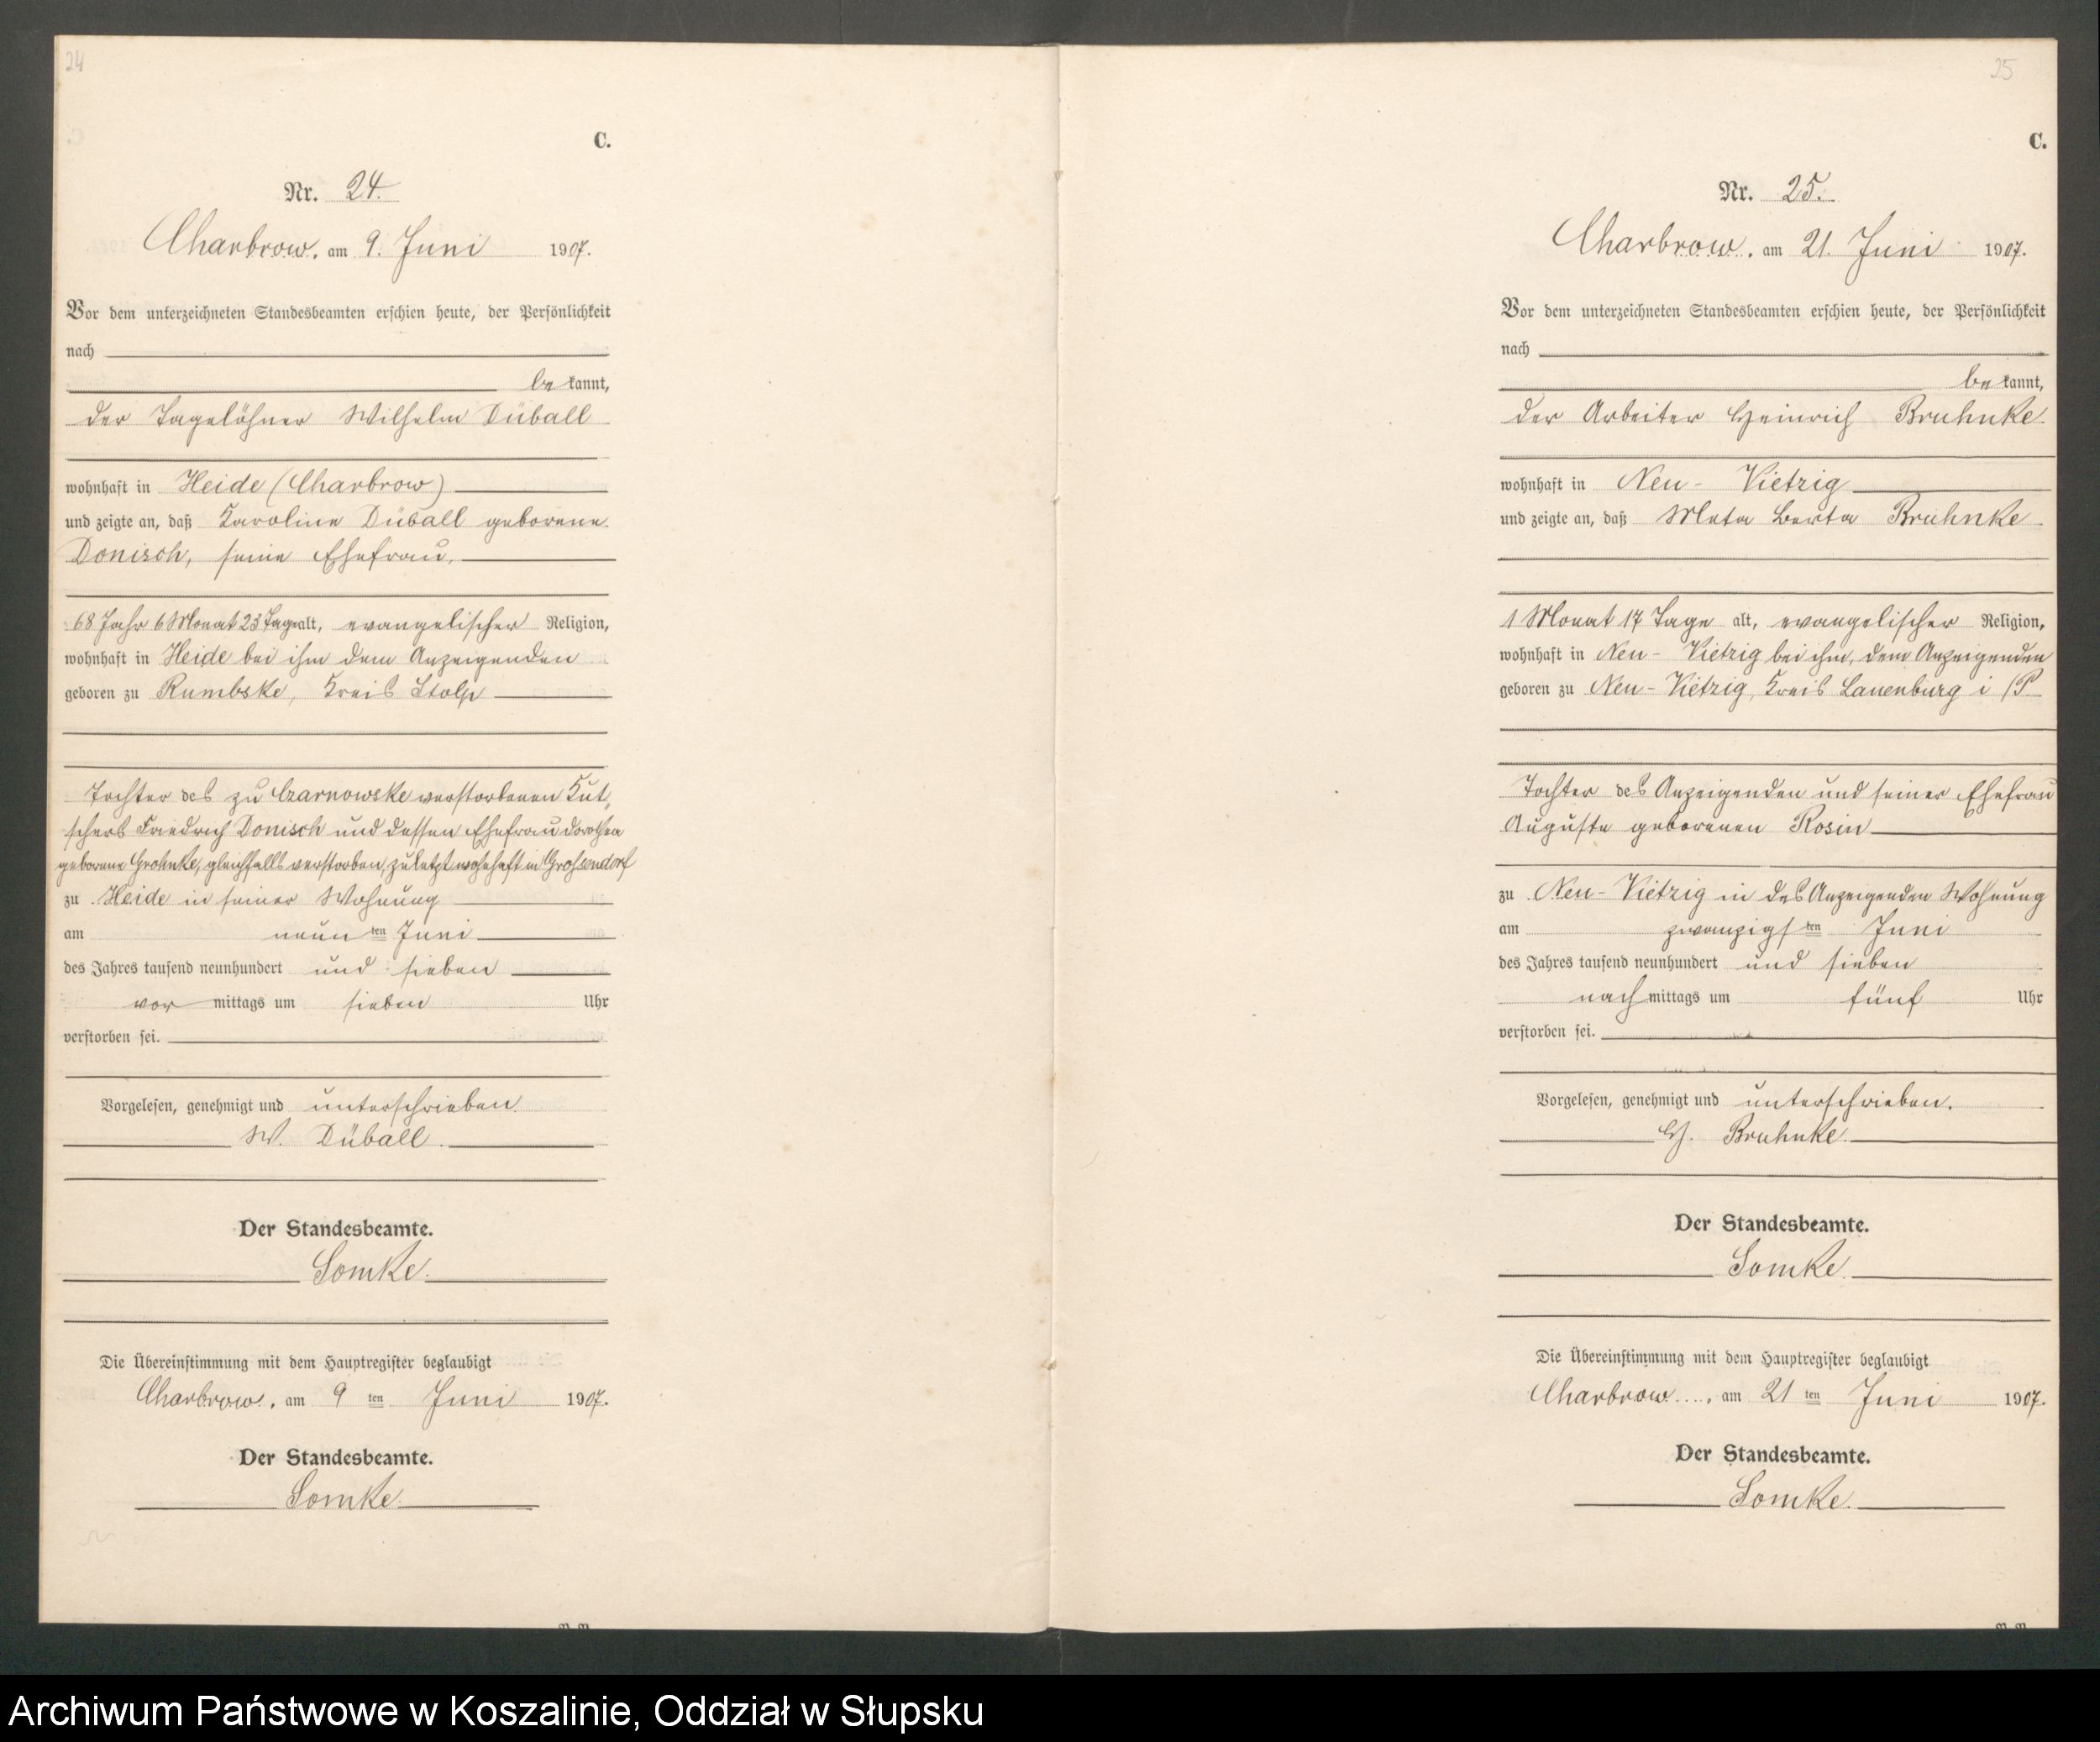 24
C.
Nr. 24.
Charbrow, am 9. Juni 1907.
Vor dem unterzeichneten Standesbeamten erschien heute, der Persönlichkeit
nach
bekannt,
der Tagelöhner Wilhelm Düball
wohnhaft in Heide (Charbrow)
und zeigte an, daß Karoline Düball geborene
Donisch, seine Ehefrau,
68 Jahr 6 Monat 23 Tage alt, evangelischer Religion,
wohnhaft in Heide bei ihm dem Anzeigenden
geboren zu Rumbske, Kreis Stolp
Tochter des zu Czarnowske verstorbenen Kut-
schers Friedrich Donisch und dessen Ehefrau Dorothea
geborene Grohnke, gleichfalls verstorben, zuletzt wohnhaft in Grossendorf
zu Heide in seiner Wohnung
am neunten Juni
des Jahres tausend neunhundert und sieben
vor mittags um sieben Uhr
verstorben sei.
Vorgelesen, genehmigt und unterschrieben.
W. Düball.
Der Standesbeamte.
Somke.
Die Übereinstimmung mit dem Hauptregister beglaubigt
Charbrow, am 9 ten Juni 1907.
Der Standesbeamte.
Somke.
25
C.
Nr. 25.
Charbrow, am 21. Juni 1907.
Vor dem unterzeichneten Standesbeamten erschien heute, der Persönlichkeit
nach
bekannt,
der Arbeiter Heinrich Bruhnke
wohnhaft in Neu-Vietzig
und zeigte an, daß Meta Berta Bruhnke
1 Monat 17 Tage alt, evangelischer Religion,
wohnhaft in Neu-Vietzig bei ihm, dem Anzeigenden
geboren zu Neu-Vietzig, Kreis Lauenburg i/P
Tochter des Anzeigenden und seiner Ehefrau
Auguste geborenen Rosin
zu Neu-Vietzig in des Anzeigenden Wohnung
am zwanzigsten Juni
des Jahres tausend neunhundert und sieben
nach mittags um fünf Uhr
verstorben sei.
Vorgelesen, genehmigt und unterschrieben.
H. Bruhnke.
Der Standesbeamte.
Somke.
Die Übereinstimmung mit dem Hauptregister beglaubigt
Charbrow, am 21 ten Juni 1907.
Der Standesbeamte.
Somke.
Archiwum Państwowe w Koszalinie, Oddział w Słupsku